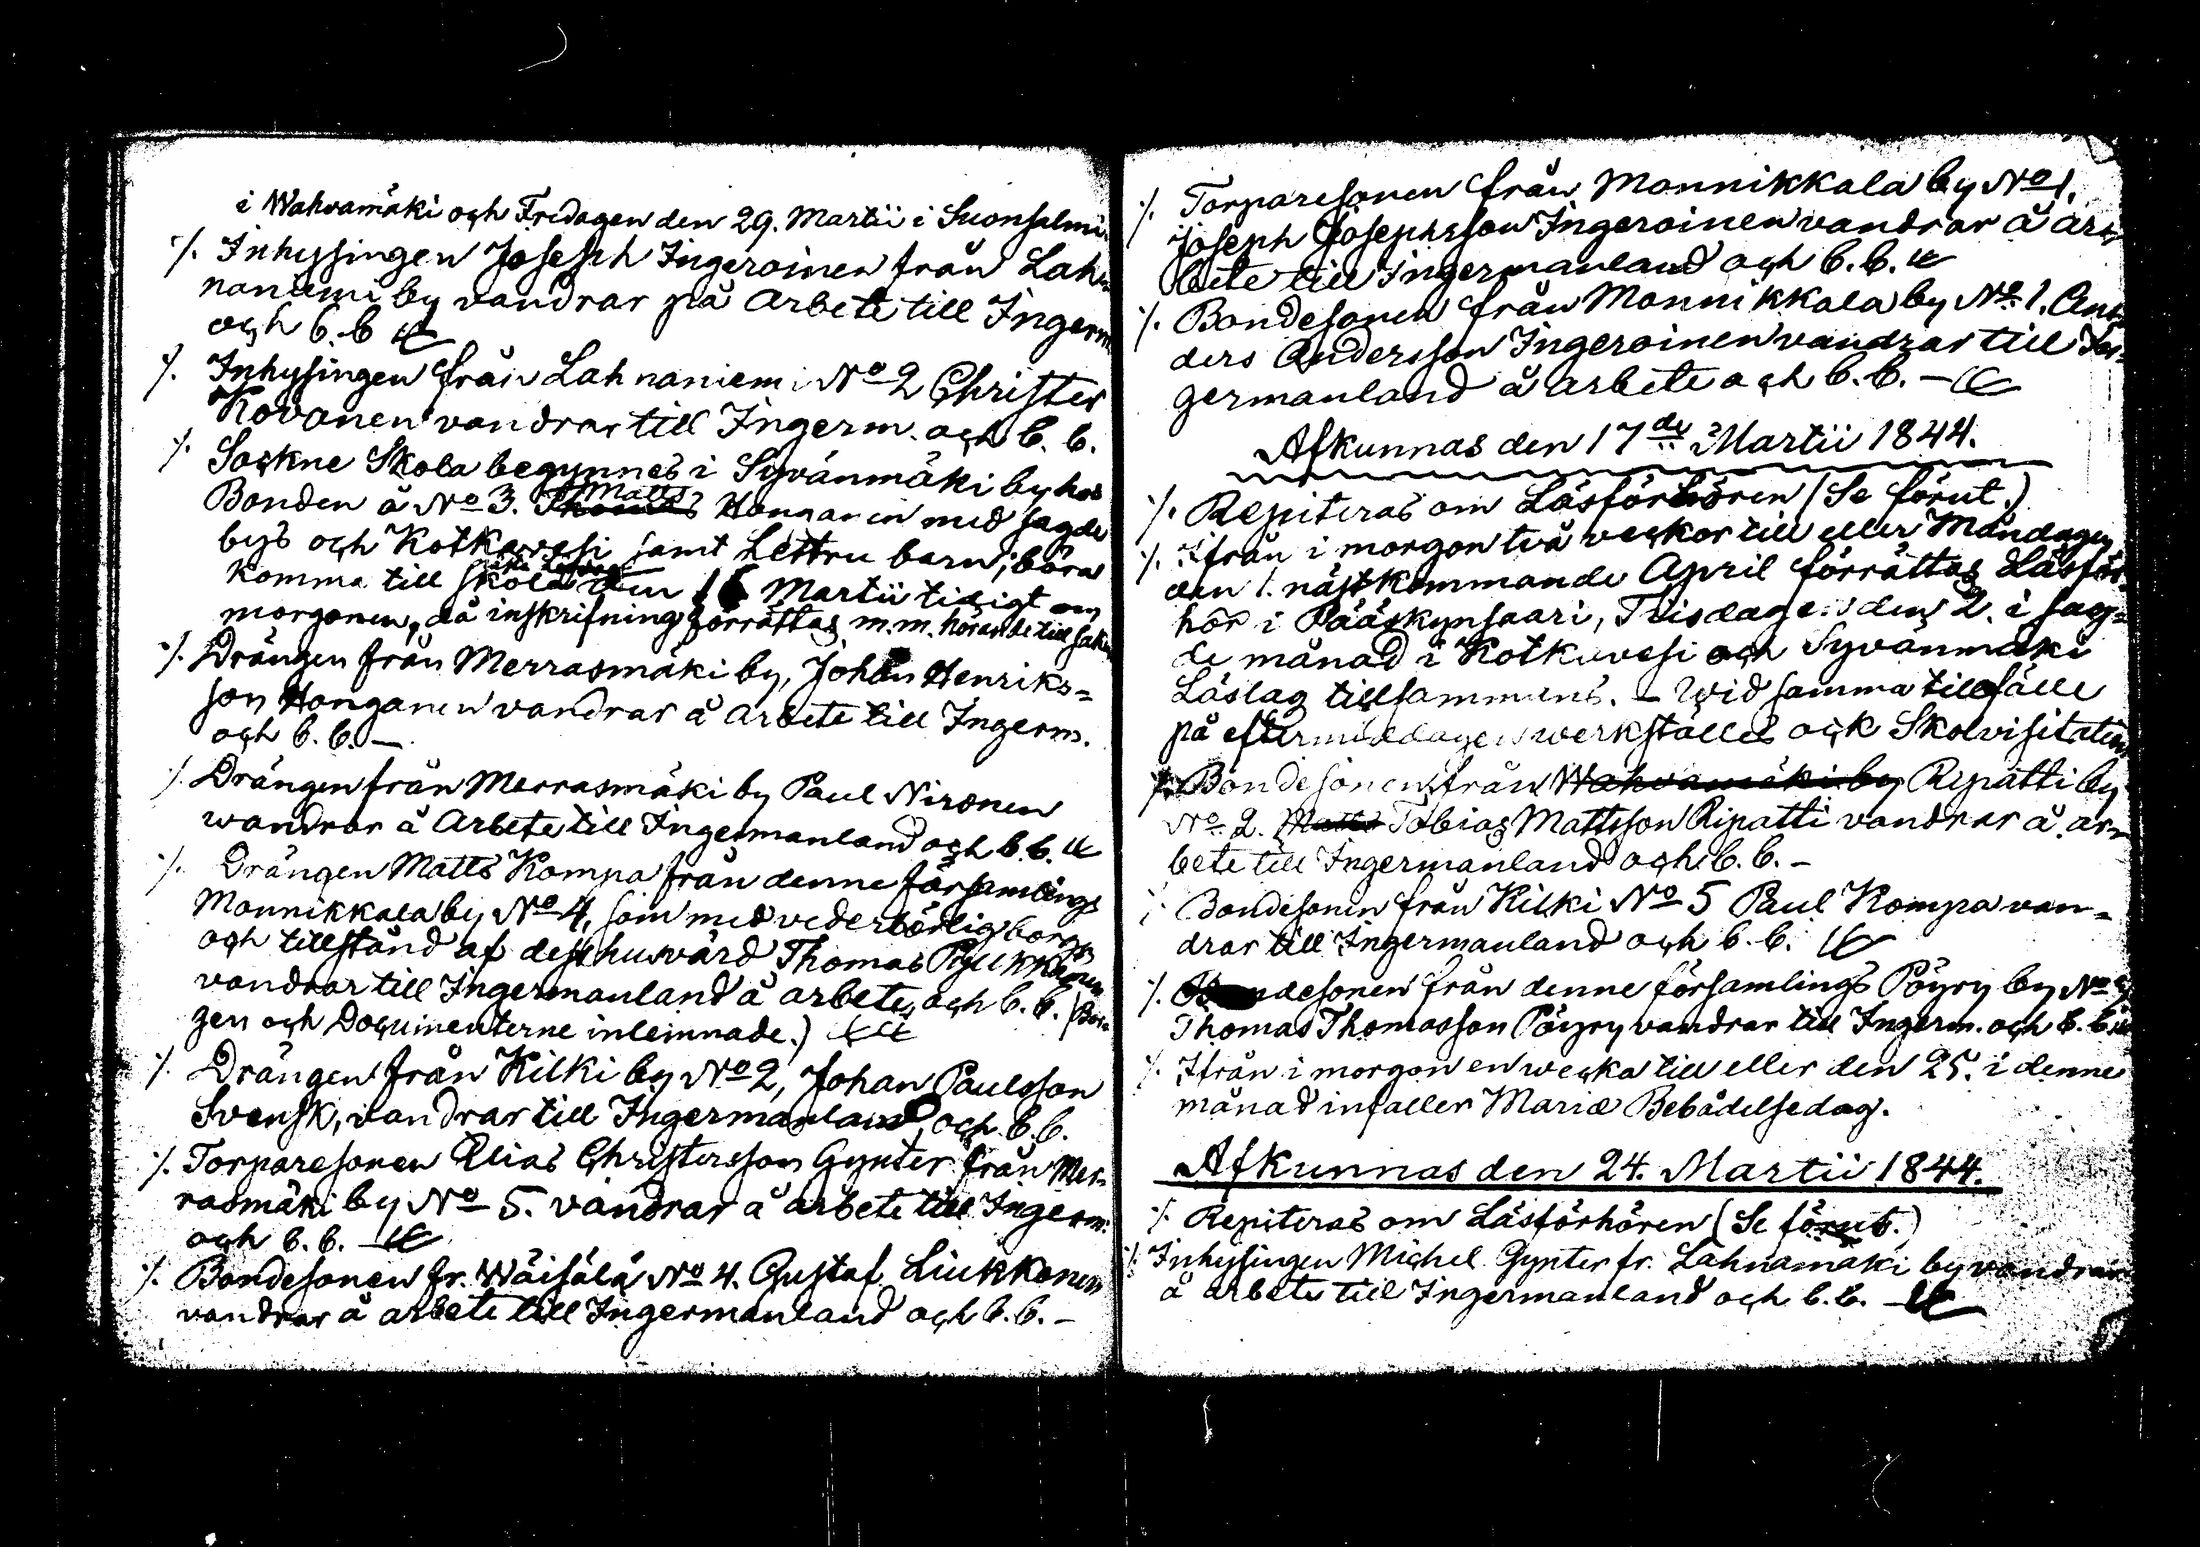 i Wahvamäki och Fredagen den 29. Martii i Suonsalmi
⁒ Inhysingen Joseph Ingeroinen från Lah-
naniemi by vandrar på Arbete till Ingerm
och b. b
⁒ Inhysingen från Lahnaniemi No 2 Christer
Kovanen vandrar till Ingerm. och b. b.
⁒ Sockne Skola begynnes i Syvänmäki by hos
Bonden å No 3. Matts Honganen med sagde
bys och Kotkavesi samt Lettru barn; böra
komma till skola den Martii tidigt om
morgonen, då inskrifning förrättas m.m. hörande till saken
⁒ Drängen från Merrasmäki by, Johan Henriks=
son Honganen vandrar å arbete till Ingerm.
och b. b. —
⁒ Drängen från Merrasmäki by Paul Nironen
wandrar å Arbete till Ingermanland och b. b.
⁒ Drängen Matts Kompa från denne församlings
Monnikkala by No 4, som med vederbörlig borgen
och tillstånd af dess husvärd Thomas
vandrar till Ingermanland å arbete, och b. b. (Bor-
gen och Documenterne inlemnade.)
⁒ Drängen från Kilki by No 2, Johan Paulsson
Svensk, vandrar till Ingermanland och b. b.
⁒ Torparesonen Elias Christersson Gynter från Mer-
rasmäki by No 5. vandrar å arbete till Ingerm.
och b. b.
⁒ Bondesonen fr. Wäisälä No 4. Gustaf Liukkonen
vandrar å arbete till Ingermanland och b. b. —
⁒ Torparesonen från Monnikkala by No 1.
Joseph Josephsson Ingeroinen vandrar å ar-
bete till Ingermanland och b. b.
⁒ Bondesonen från Monnikkala by No 1. An-
ders Andersson Ingeroinen vandrar till In-
germanland å arbete och b. b. —
Afkunnas den 17de Martii 1844.
⁒ Repiteras om Läsförhören (Se förut.)
⁒ Ifrån i morgon två veckor till eller Måndagen
den 1. nästkommande April förrättas Läsför-
hör i Pääskynsaari, Tisdagen den 2. i sag=
de månad i Kotkavesi och Syvänmäki
Läslag tillsammans. — Wid samma tillfälle
på eftermiddagen werkställes ock Skolvisitation
⁒ Bondesonen från Wahvamäki by Repatti by
No 2. Matts Tobias Mattsson Ripatti vandrar å ar-
bete till Ingermanland och b. b. —
⁒ Bondesonen från Kilki No 5 Paul Kompa van=
drar till Ingermanland och b. b.
⁒ Bondesonen från denne församlings Pöyry by No
Thomas Thomasson Pöyry vandrar till Ingerm. och b. b.
⁒ Ifrån i morgon en wecka till eller den 25. i denne
månad infaller Mariæ Bebådelsedag.
Afkunnas den 24. Martii 1844.
⁒ Repiteras om Läsförhören (Se förut.)
⁒ Inhysingen Michel Gynter fr. Lahnamäki by vandrar
å arbete till Ingermanland och b. b. —